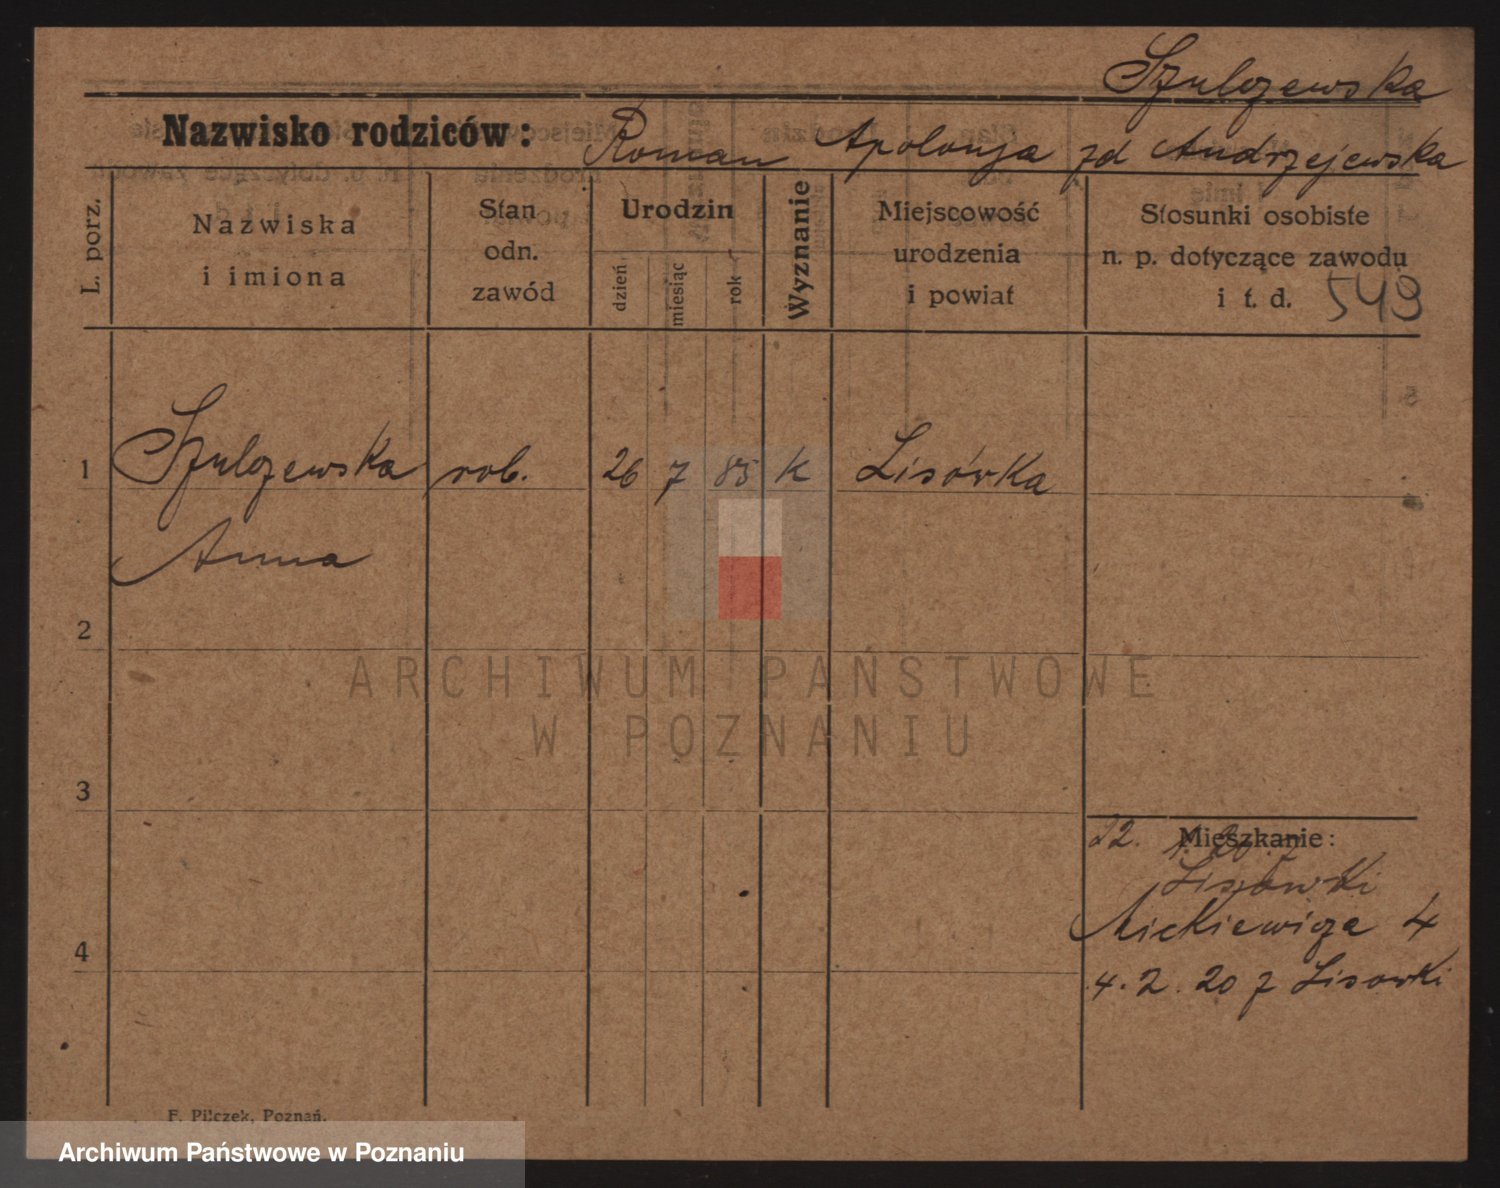 Szulczewska
Nazwisko rodziców: Roman Apolonja zd Andrzejewska
L. porz.
Nazwiska
i imiona
Stan
odn.
zawód
Urodzin
dzień
miesiąc
rok
Wyznanie
Miejscowość
urodzenia
i powiat
Stosunki osobiste
n. p. dotyczące zawodu
i t. d. 549
1 Szulczewska rob. 26 7 85 k Lisówka
Anna
2
ARCHIWUM PAŃSTWOWE
W POZNANIU
3
Mieszkanie:
Lisówki
Mickiewicza 4
4
4.2.20 z Lisowki
F. Pilczek, Poznań.
Archiwum Państwowe w Poznaniu